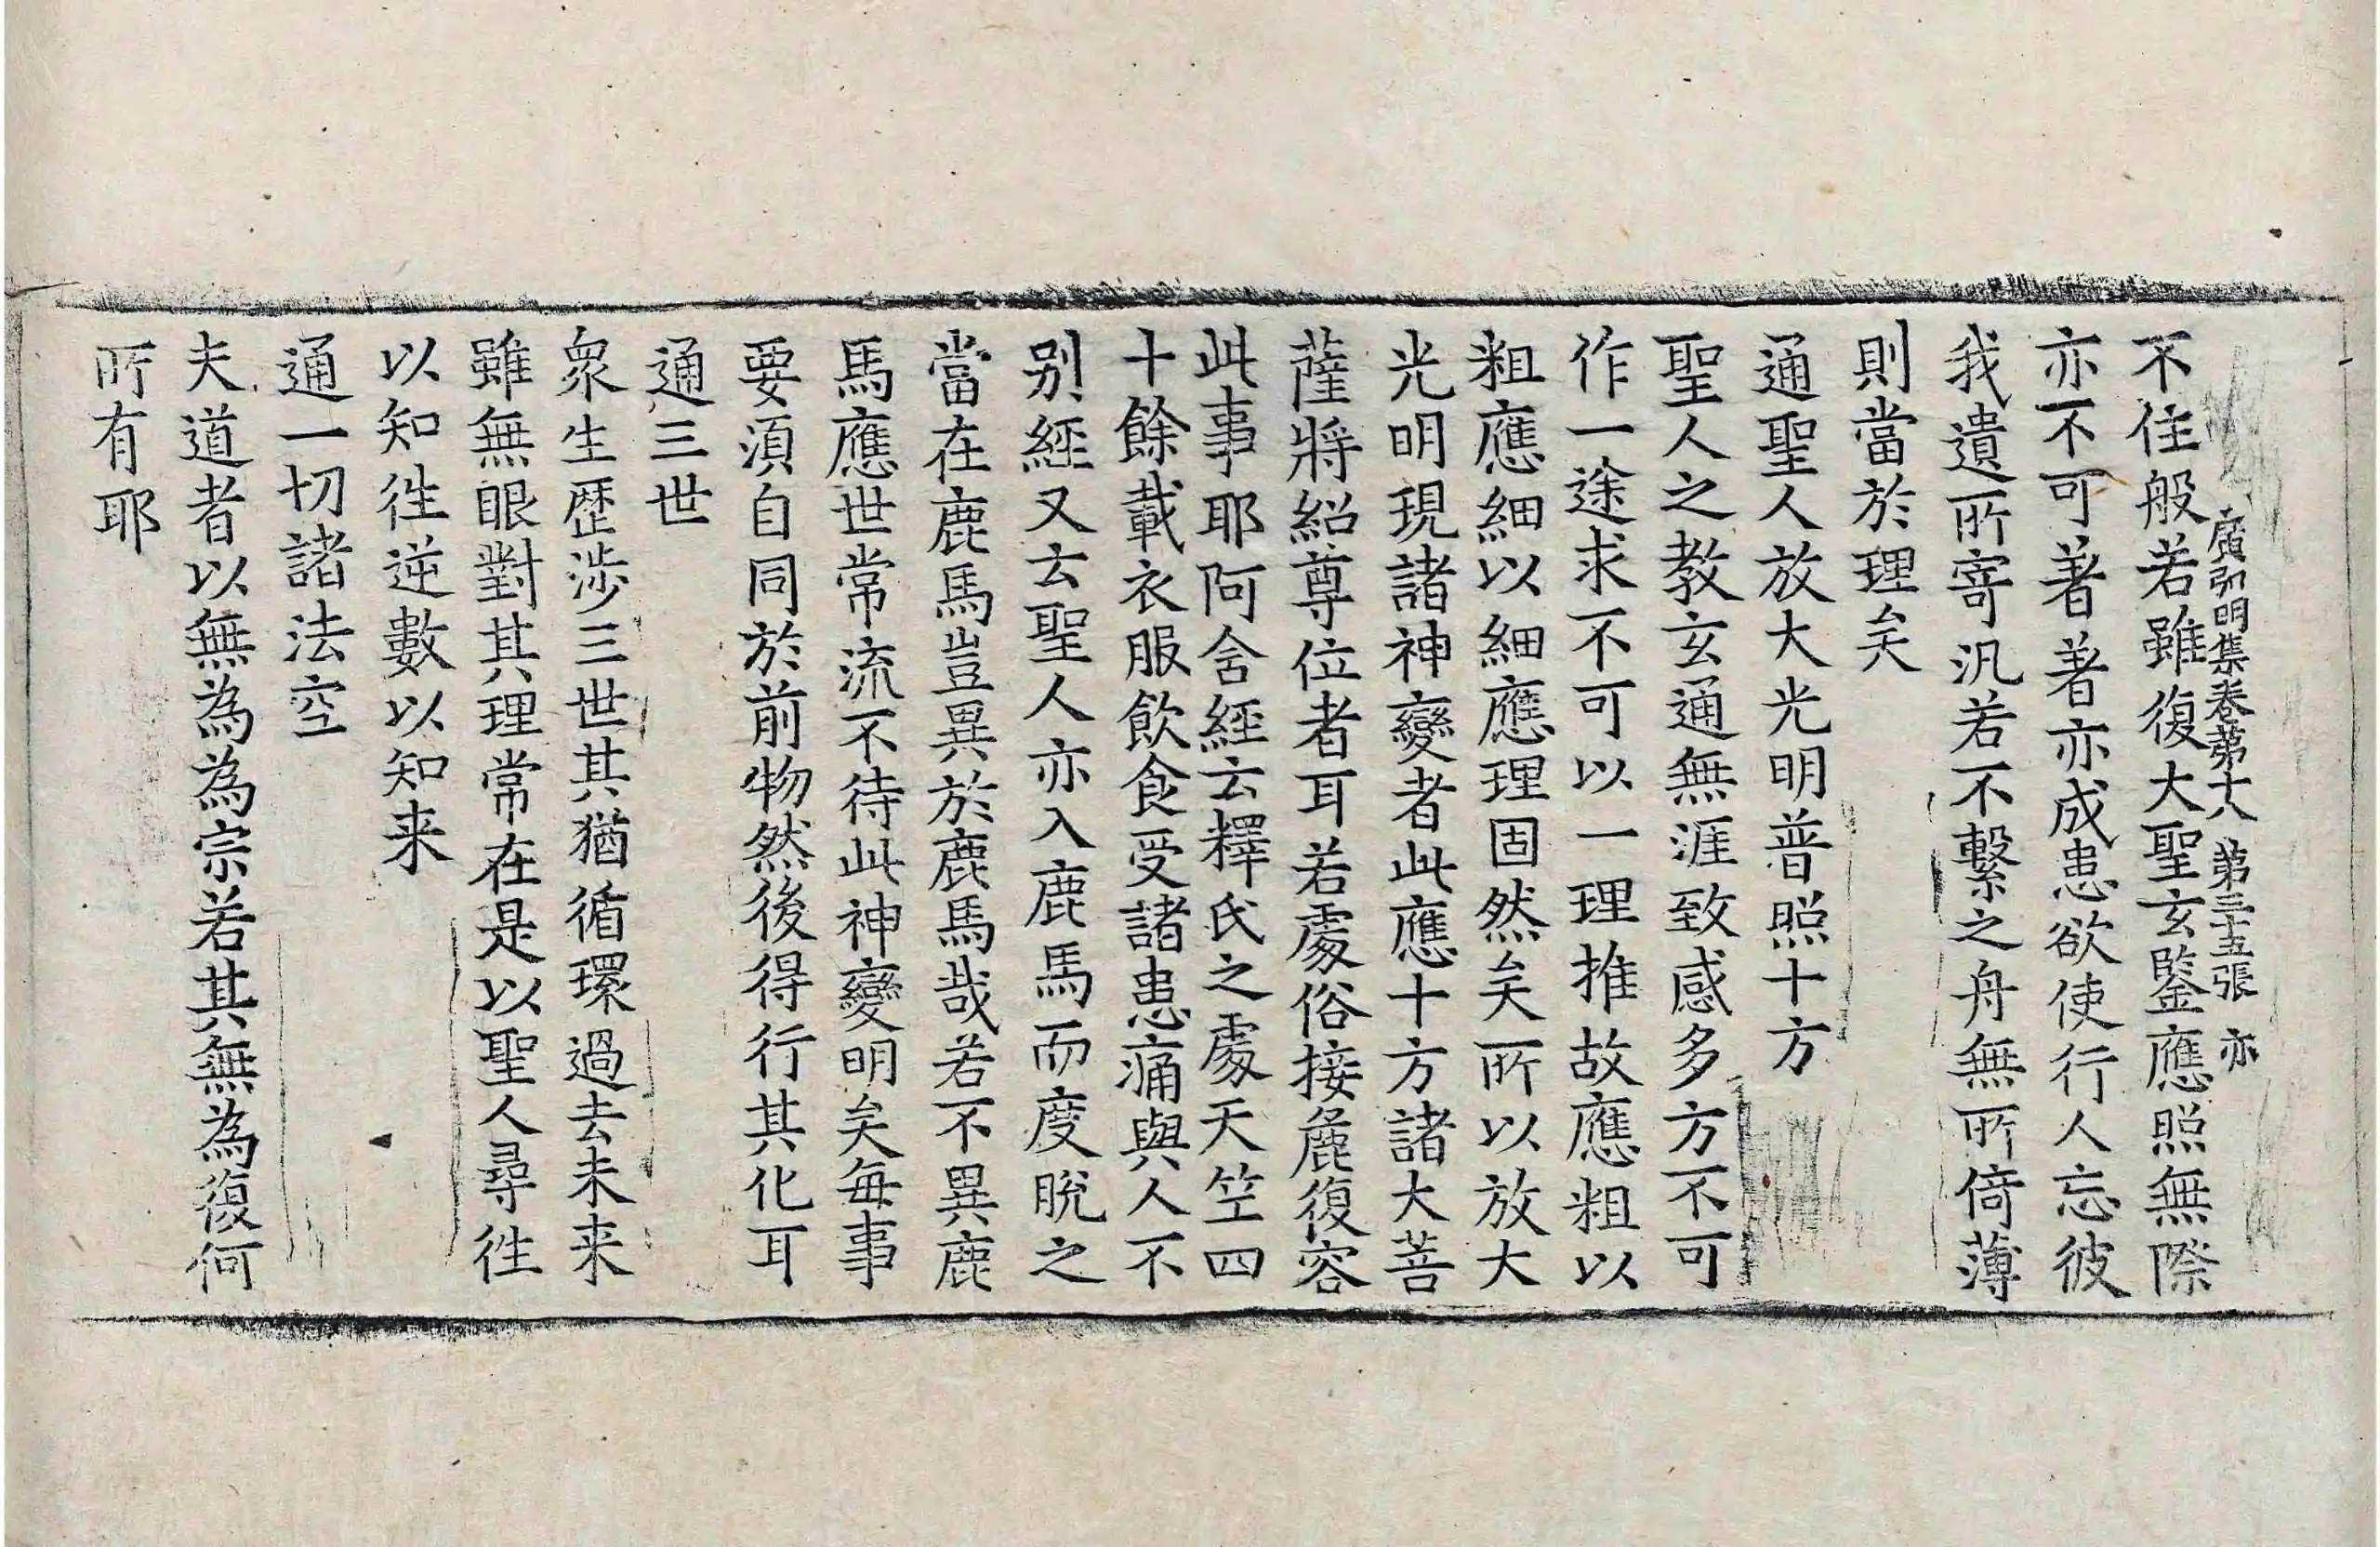 廣弘明集卷第十八 第三十五張 亦
不住般若雖復大聖玄鑒應照無際
亦不可著著亦成患欲使行人忘彼
我遺所寄汎若不繫之舟無所倚薄
則當於理矣
通聖人放大光明普照十方
聖人之教玄通無涯致感多方不可
作一途求不可以一理推故應粗以
粗應細以細應理固然矣所以放大
光明現諸神變者此應十方諸大菩
薩將紹尊位者耳若處俗接麁復容
此事耶阿含經云釋氏之處天竺四
十餘載衣服飲食受諸患痛與人不
別經又云聖人亦入鹿馬而度脫之
當在鹿馬豈異於鹿馬哉若不異鹿
馬應世常流不待此神變明矣每事
要須自同於前物然後得行其化耳
通三世
衆生歷涉三世其猶循環過去未来
雖無眼對其理常在是以聖人尋往
以知往逆數以知来
通一切諸法空
夫道者以無為為宗若其無為復何
所有耶